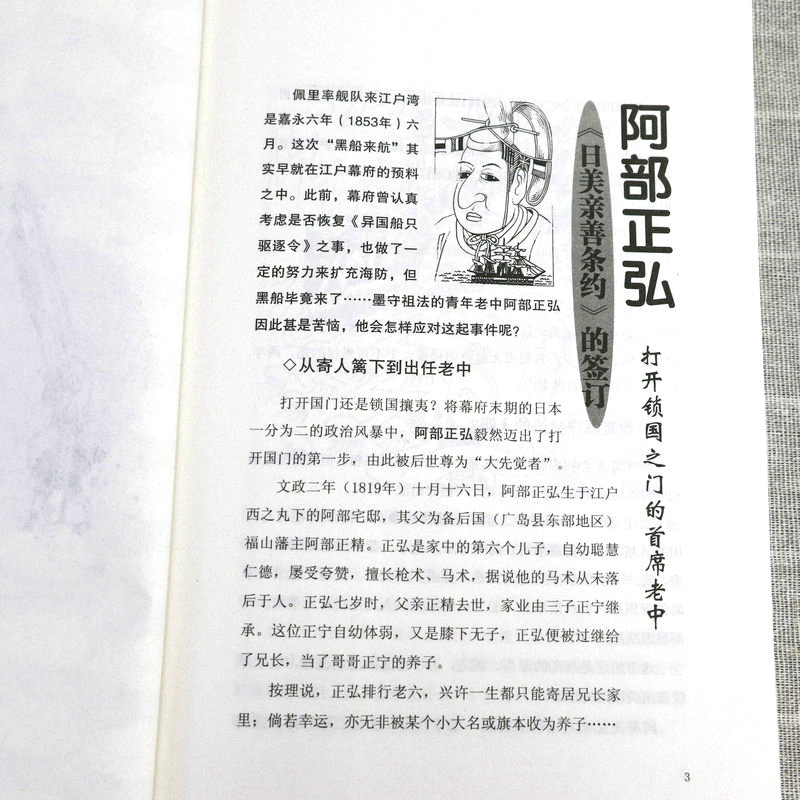 阿部正弘
《日美亲善条约》的签订
打开锁国之门的首席老中
佩里率舰队来江户湾
是嘉永六年（1853年）六
月。这次“黑船来航”其
实早就在江户幕府的预料
之中。此前，幕府曾认真
考虑是否恢复《异国船只
驱逐令》之事，也做了一
定的努力来扩充海防，但
黑船毕竟来了……墨守祖法的青年老中阿部正弘
因此甚是苦恼，他会怎样应对这起事件呢？
◇从寄人篱下到出任老中
打开国门还是锁国攘夷？将幕府末期的日本
一分为二的政治风暴中，阿部正弘毅然迈出了打
开国门的第一步，由此被后世尊为“大先觉者”。
文政二年（1819年）十月十六日，阿部正弘生于江户
西之丸下的阿部宅邸，其父为备后国（广岛县东部地区）
福山藩主阿部正精。正弘是家中的第六个儿子，自幼聪慧
仁德，屡受夸赞，擅长枪术、马术，据说他的马术从未落
后于人。正弘七岁时，父亲正精去世，家业由三子正宁继
承。这位正宁自幼体弱，又是膝下无子，正弘便被过继给
了兄长，当了哥哥正宁的养子。
按理说，正弘排行老六，兴许一生都只能寄居兄长家
里；倘若幸运，亦无非被某个小大名或旗本收为养子……
3